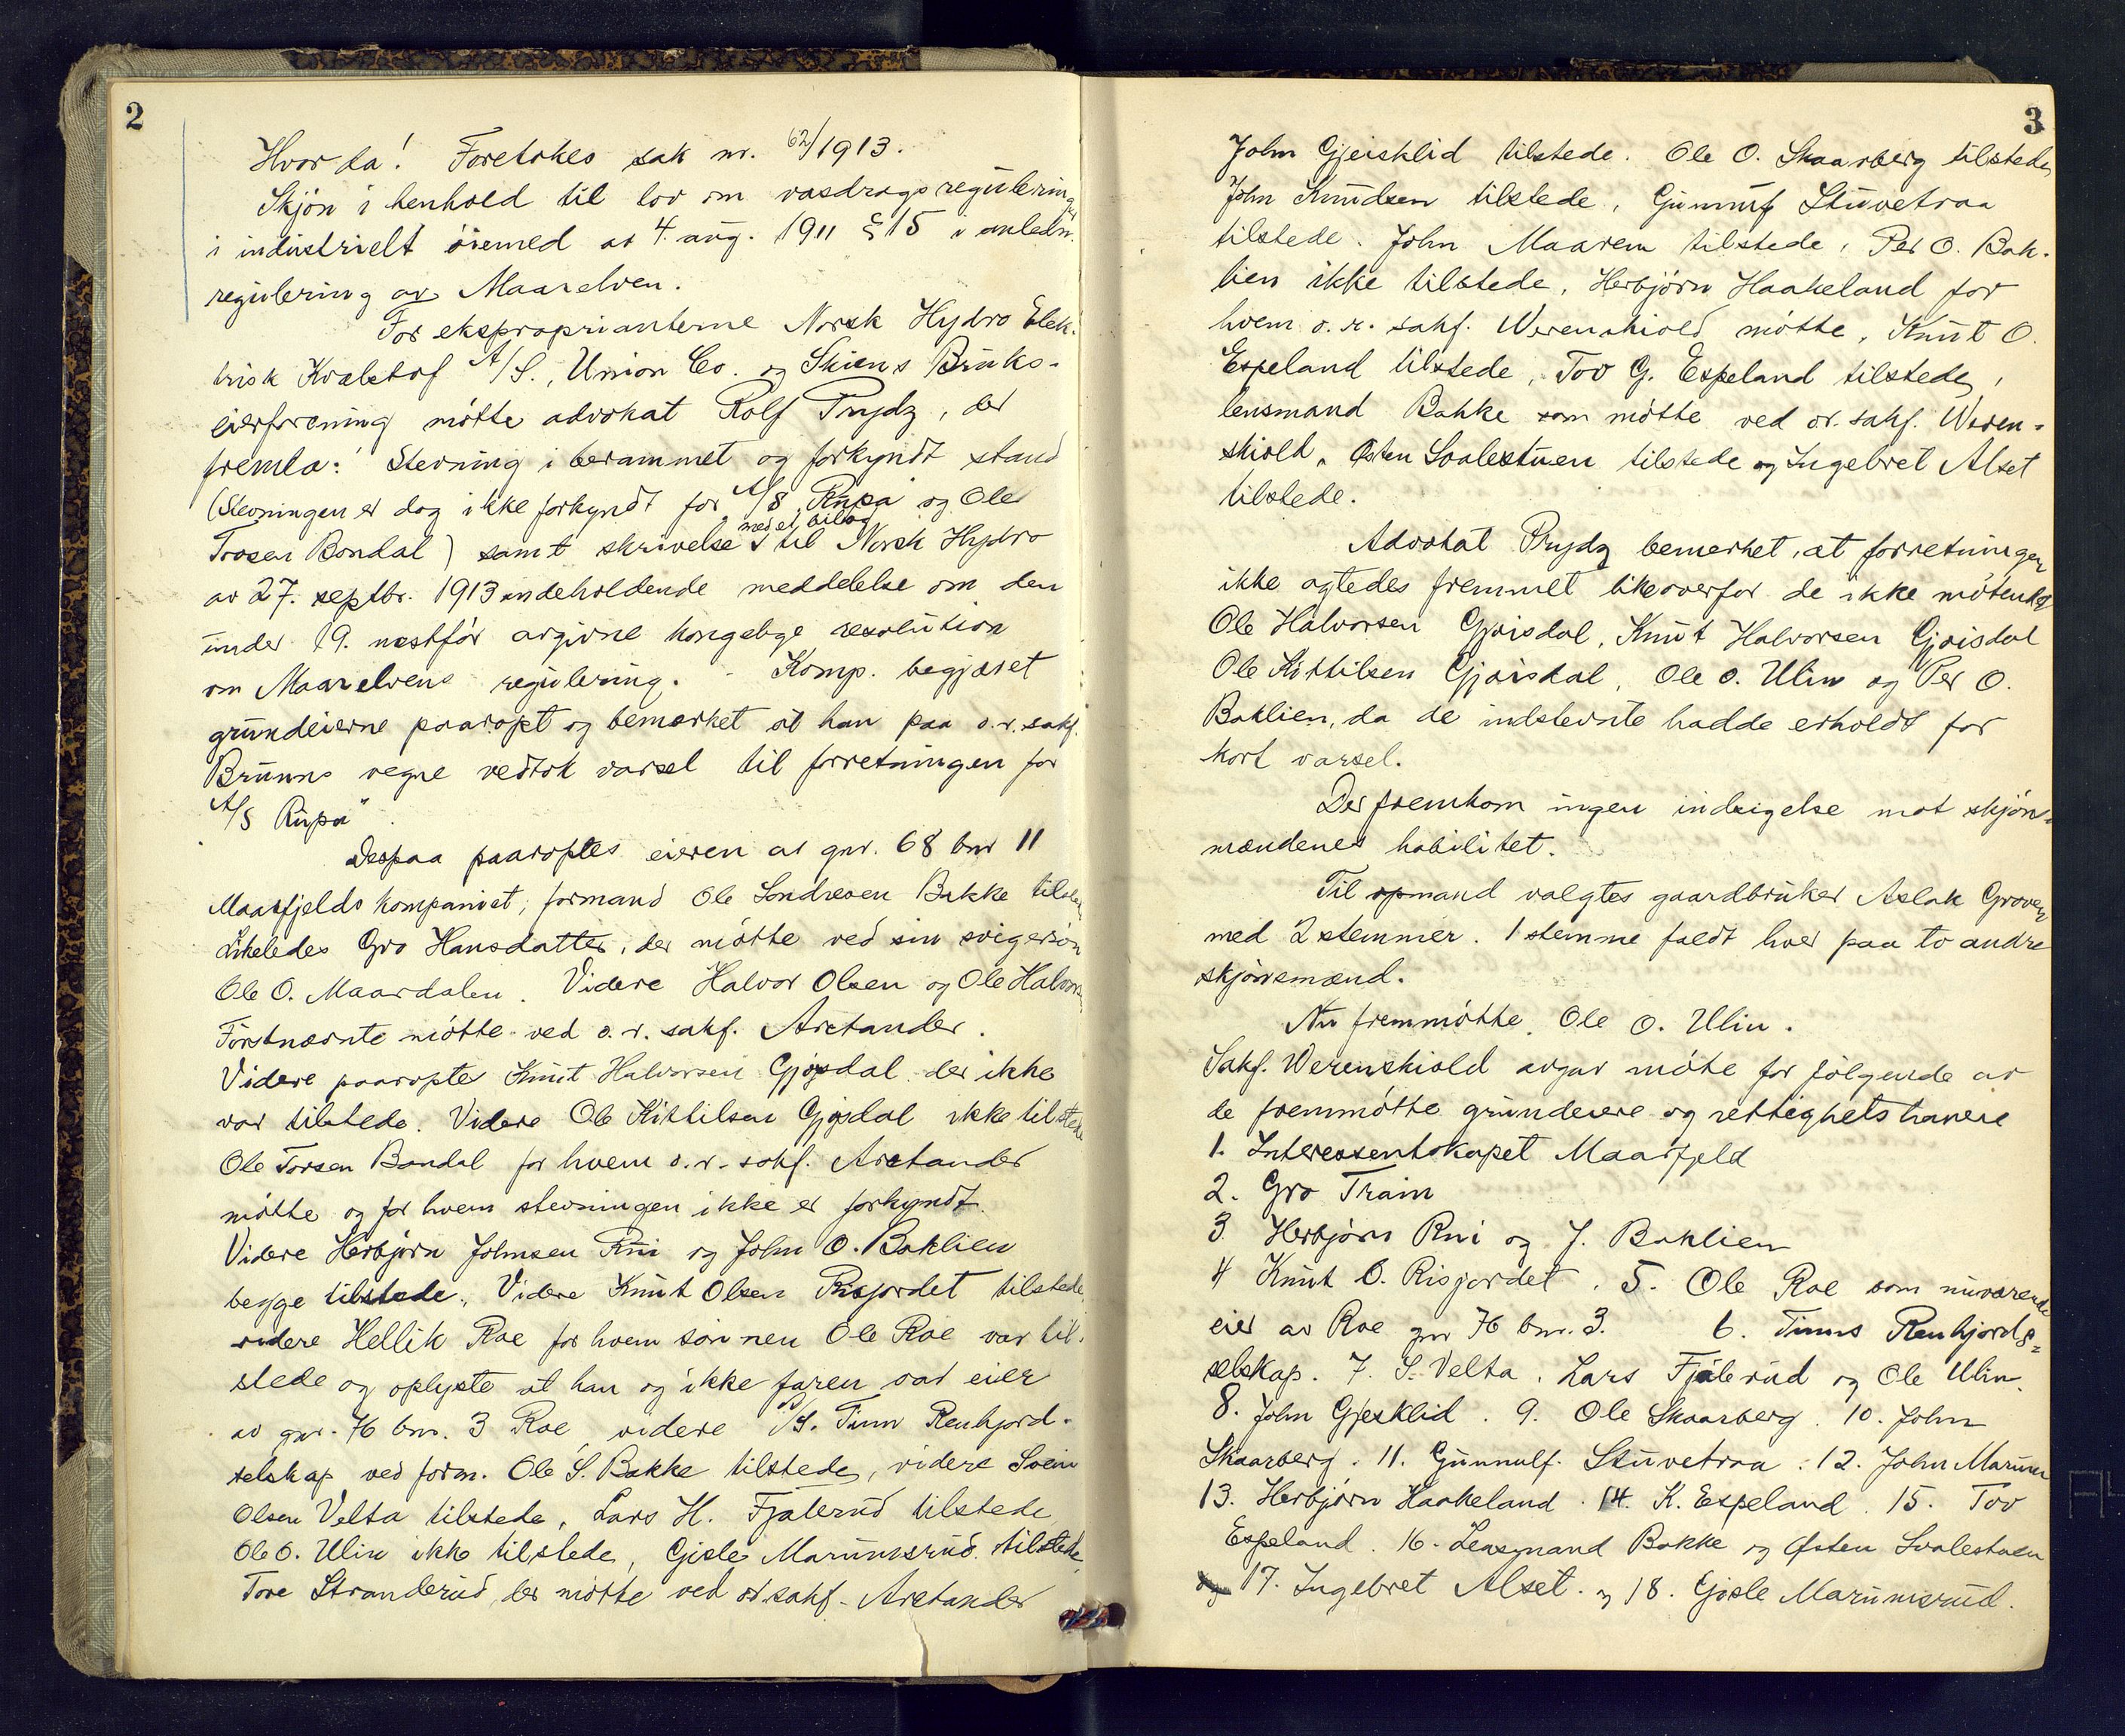 2
Hvorda! Foretokes sak nr. 62/1913.
Skjön i henhold til lov om vasdragsreguleringer
i industrielt öiemed av 4. aug. 1911 § 15 i anledn.
regulering av Maarelven.
For ekspropriantene Norsk Hydro Elek-
trisk Kvælstof A/S., Union Co. og Skiens Bruks-
eierforening mötte advokat Rolf Prydz, der
fremla: Stevning i berammet og forkyndt stand
(Stevningen er dog ikke forkyndt for A/S „Rupa" og Ole
Trosen Bondal) samt skrivelse med et bilag til Norsk Hydro
av 27. septbr. 1913 indeholdende meddelelse om den
under 19. næstför avgivne kongelige resolution
om Maarelvens regulering. - Komp. begjæret
grundeierne paaropt og bemerket at han paa o.r.sakf.
Bruuns vegne vedtok varsel til forretningen for
A/S Rupa".
Derpaa paaroptes eieren av gnr. 68 bnr 11
Maarfjelds kompaniet, formand Ole Sondresen Bakke tilstede
Likeledes Gro Hansdatter, der mötte ved sin svigersön
Ole O. Maardalen. Videre Halvor Olsen og Ole Halvorsen
Förstnævnte mötte ved o.r. sakf. Arctander.
Videre paaroptes Knut Halvorsen Gjøsdal der ikke
var tilstede. Videre Ole Kittilsen Gjøsdal ikke tilstede
Ole Torsen Bondal for hvem o.r. sakf. Arctander
mötte og for hvem stevningen ikke er forkyndt.
Videre Herbjörn Johnsen Rui og John O. Baklien
begge tilstede. Videre Knut Olsen Risjordet tilstede,
videre Hellik Roe for hvem sönnen Ole Roe var til-
stede og oplyste at han og ikke faren var eier
av gnr. 76 bnr. 3 Roe videre A/S. Tinn Renhjord-
selskap ved form. Ole S. Bakke tilstede, videre Svein
Olsen Velta tilstede, Lars H. Fjølerud tilstede
Ole O. Ulin ikke tilstede, Gisle Marumsrud tilstede,
Tore Stranderud, der mötte ved or.sakf. Arctander
3
John Gjeisklid tilstede. Ole O. Skaarberg tilstede,
John Knudsen tilstede, Gunnuf Stuvetraa
tilstede. John Maarem tilstede, Per O. Bak-
lien ikke tilstede, Herbjörn Haakeland for
hvem o.r. sakf. Werenskiold mötte, Knut O.
Espeland tilstede, Tov G. Espeland tilstede,
lensmand Bakke som mötte ved or. sakf. Weren-
skiold, Østen Svalestuen tilstede og Ingebret Alset
tilstede.
Advokat Prydz bemerket, at forretningen
ikke agtedes fremmet likeoverfor de ikke mötende
Ole Halvorsen Gjøisdal, Knut Halvorsen Gjøisdal
Ole Kittilsen Gjøisdal, Ole O. Ulin og Per O.
Baklien, da de indstevnte hadde erholdt for
kort varsel.
Der fremkom ingen indsigelse mot skjöns-
mændenes habilitet.
Til opmand valgtes gaardbruker Aslak Groven
med 2 stemmer. 1 stemme faldt hver paa to andre
skjönsmænd.
Nu fremmötte Ole O. Ulin.
Sakf. Werenskiold avgav möte for fölgende av
de fremmötte grundeiere og rettighetshavere
1. Interessentskapet Maarfjeld
2. Gro Traim
3 Herbjörn Rui og J. Baklien
4 Knut O. Risjordet. 5. Ole Roe som nuværende
eier av Roe gnr 76 bnr. 3. 6. Tinns Renhjords-
selskap. 7. S. Velta, Lars Fjölerud og Ole Ulin.
8. John Gjesklid. 9. Ole Skaarberg. 10. John
Skaarberg. 11. Gunnulf. Stuvetraa. 12. John Marum
13. Herbjørn Haakeland. 14. K. Espeland. 15. Tov
Espeland. 16. Lensmand Bakke og Østen Svalestuen
og 17. Ingebret Alset. og 18. Gisle Marumsrud.